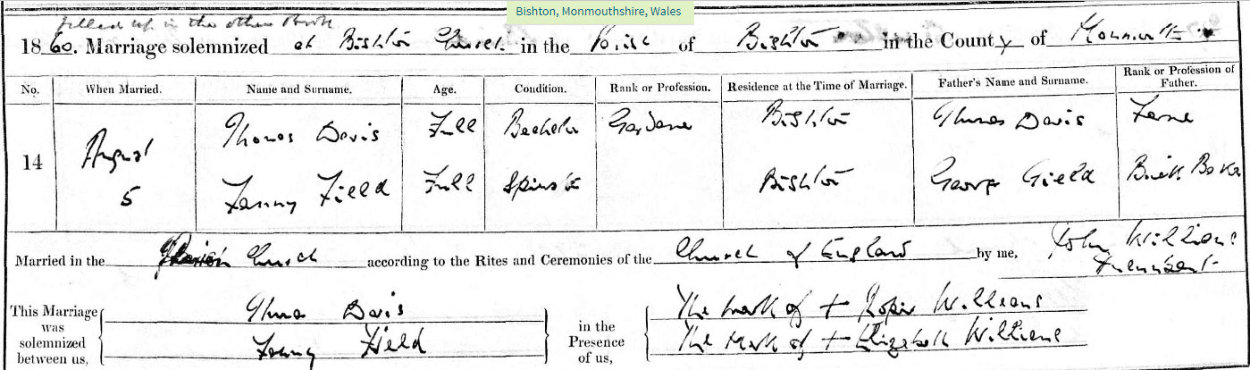 Bishton, Monmouthshire, Wales
filled up in the other Book
1860. Marriage solemnized at Bishton Church in the of Bishton in the County of
No. When Married. Name and Surname. Age. Condition. Rank or Profession. Residence at the Time of Marriage. Father's Name and Surname. Rank or Profession of Father.
14 August 5
Thomas Davis Full Bachelor Bishton Thomas Davis
Fanny Field Full Spinster Bishton George Field Brick
Married in the Parish Church according to the Rites and Ceremonies of the Church of England by me, John Williams
This Marriage was solemnized between us, Thomas Davis
Fanny Field
in the Presence of us, The mark of + Williams
The Mark of + Elizabeth Williams